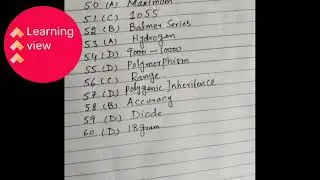 Learning
view
50 (A) Maximom
51 (C) 1055
52 (B) Balmer Series
53 (A) Hydrogen
54 (D) 9000-10000
55 (D) Polymorphism
56 (C) Range
57 (D) Polygenic Inheritence
58 (B) Accuracy
59 (D) Diode
60 (D) 18gram